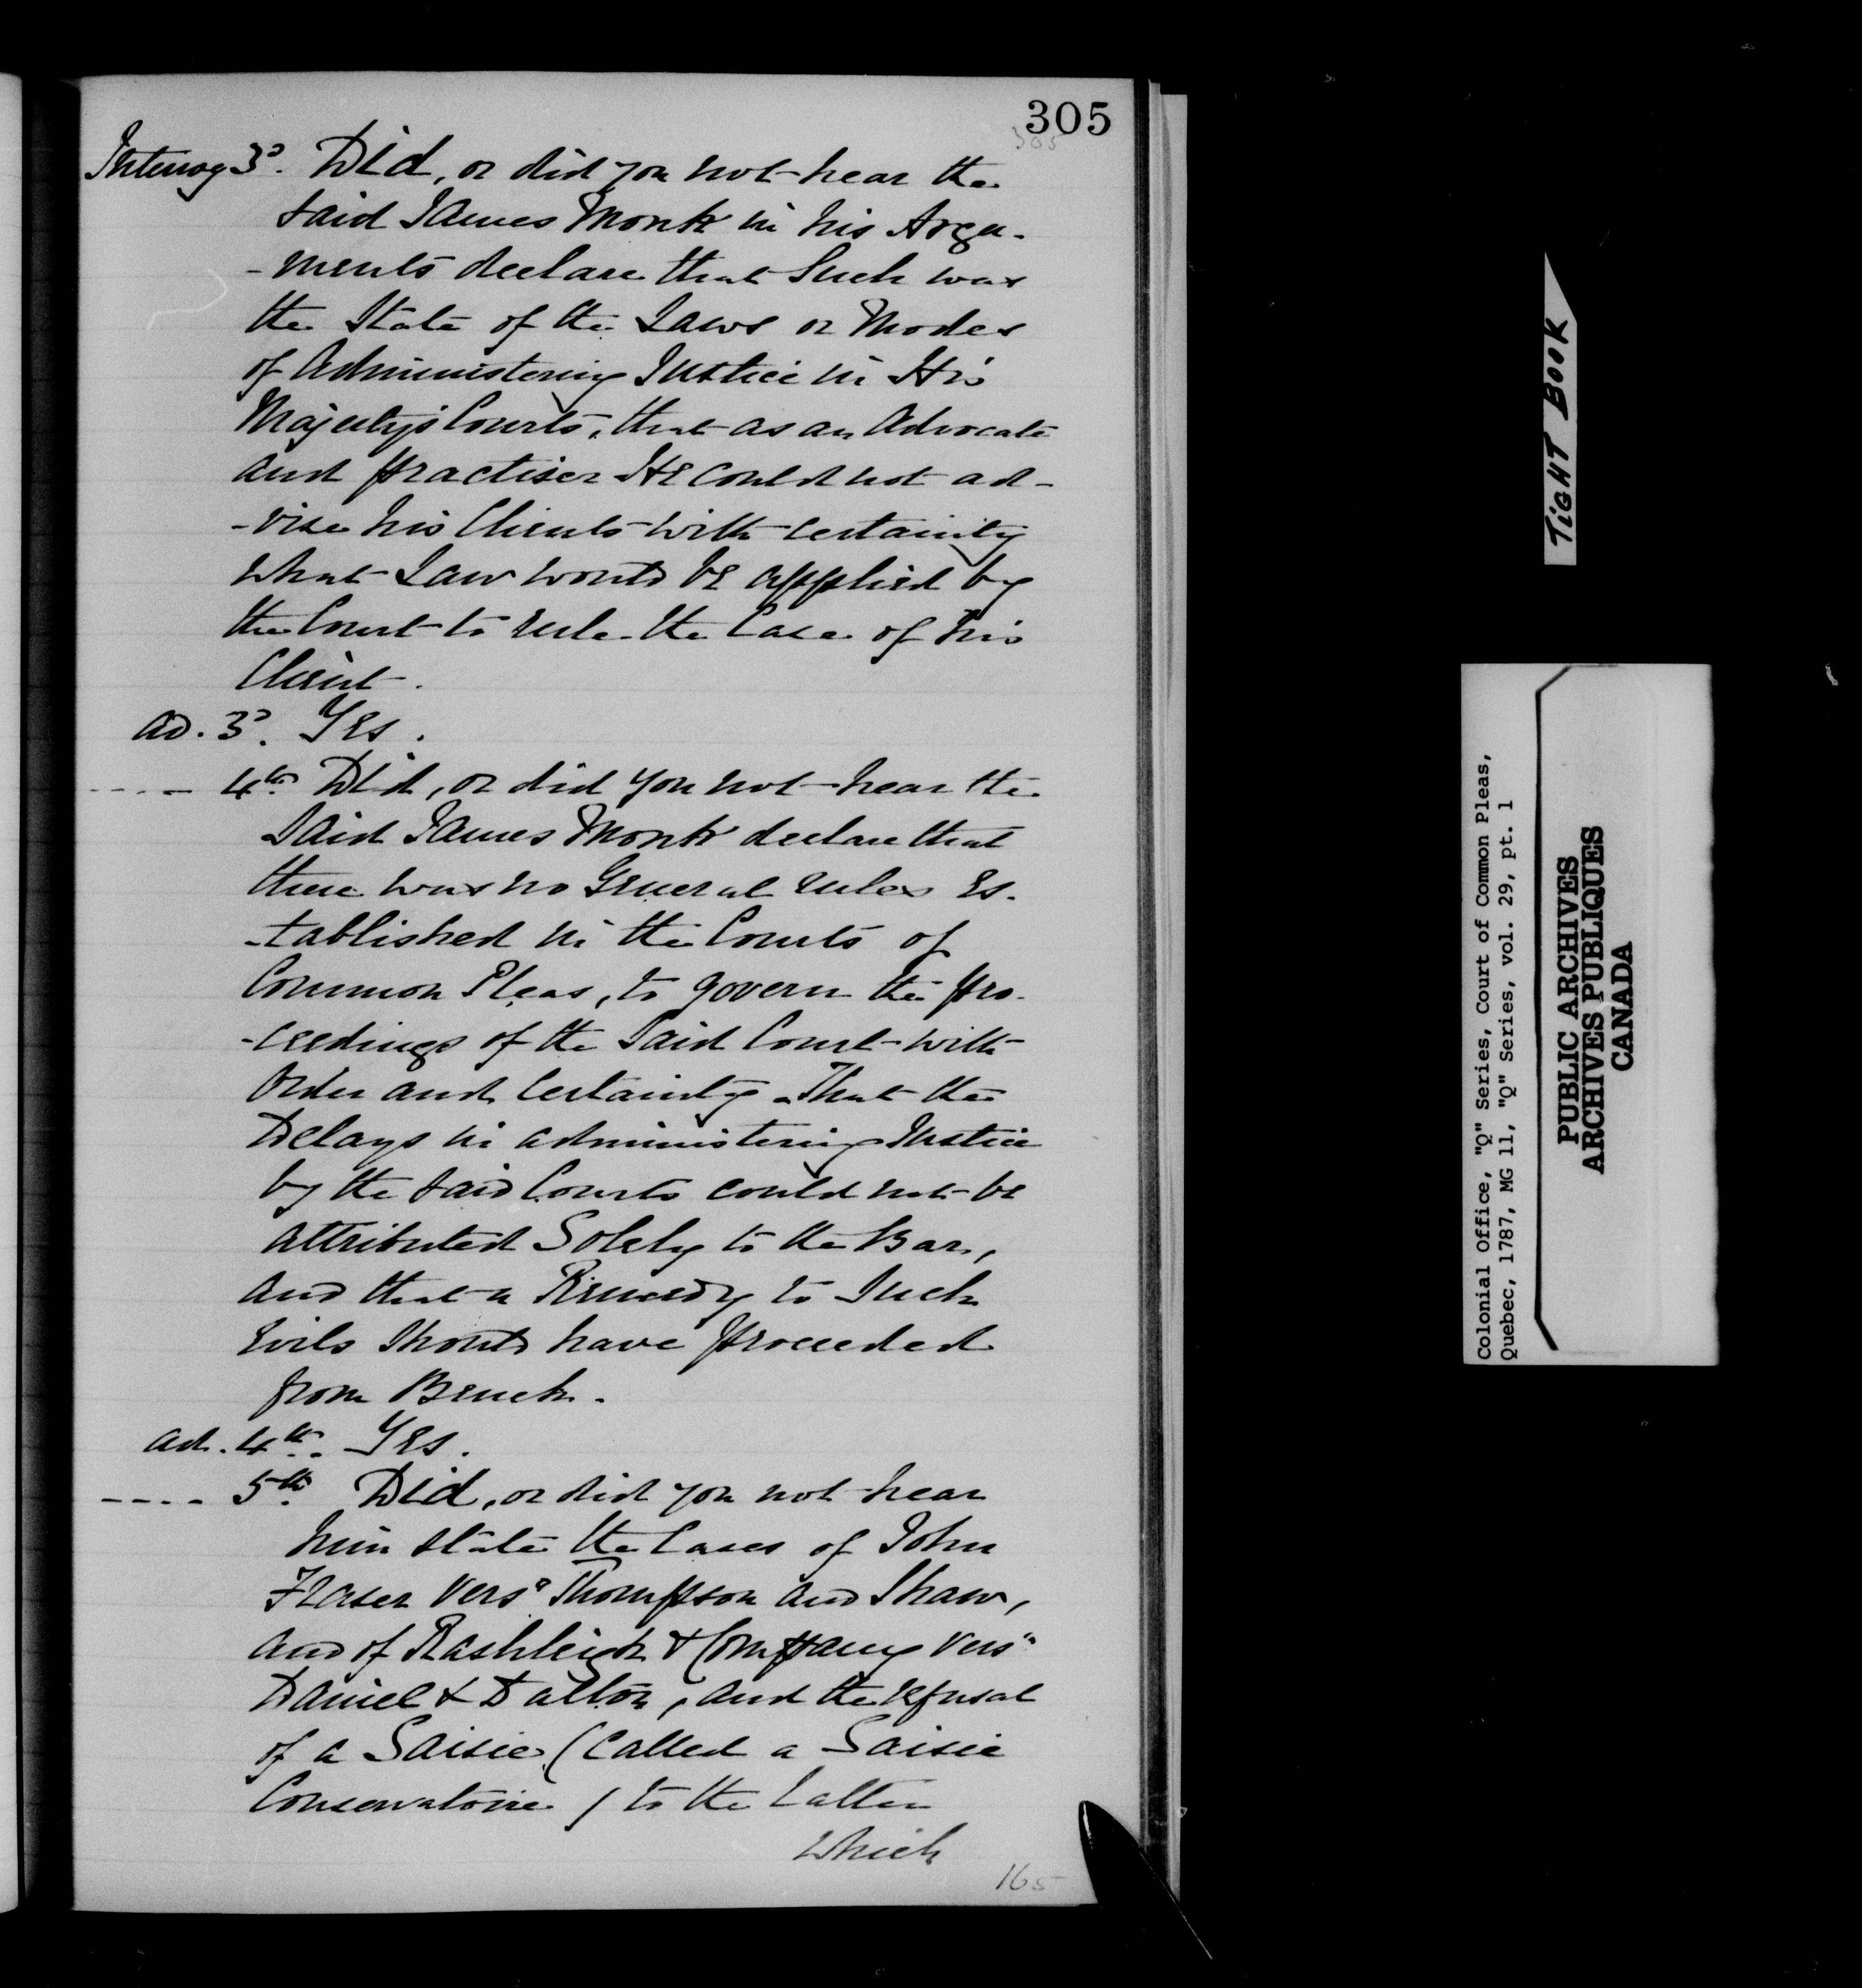 305
305
Interrog 3º. Did, or did you not hear the
said James Monk in his Argu-
-ments declare that Such was
the State of the Laws or Modes
of Administering Justice in His
Majesty's Courts, that as an Advocate
and practiser He could not ad-
-vise his Clients with certainity
what Law would be applied by
the Court to rule the Case of his
Client.
ad. 3º. Yes.
---- 4th. Did, or did you not hear the
Said James Monk declare that
there was no General rules es-
-tablished in the Courts of
Common Pleas, to govern the pro-
-ceedings of the Said Court with
Order and Certainty. That the
Delays in administering Justice
by the said Courts could not be
attributed Solely to the Bar,
and that a Remedy to Such
evils should have proceeded
from Bench.
ad. 4th. Yes.
---- 5th. Did, or did you not hear
him state the Cases of John
Fraser vers° Thompson and Shaw,
and of Rashleigh & Company vers°
Daniel & Dalton, and the refusal
of a Saisie (called a Saisie
Conservatoire) to the Latter
which
165
TIGHT BOOK
Colonial Office, "Q" Series, Court of Common Pleas,
Quebec, 1787, MG 11, "Q" Series, vol. 29, pt. 1
PUBLIC ARCHIVES
ARCHIVES PUBLIQUES
CANADA